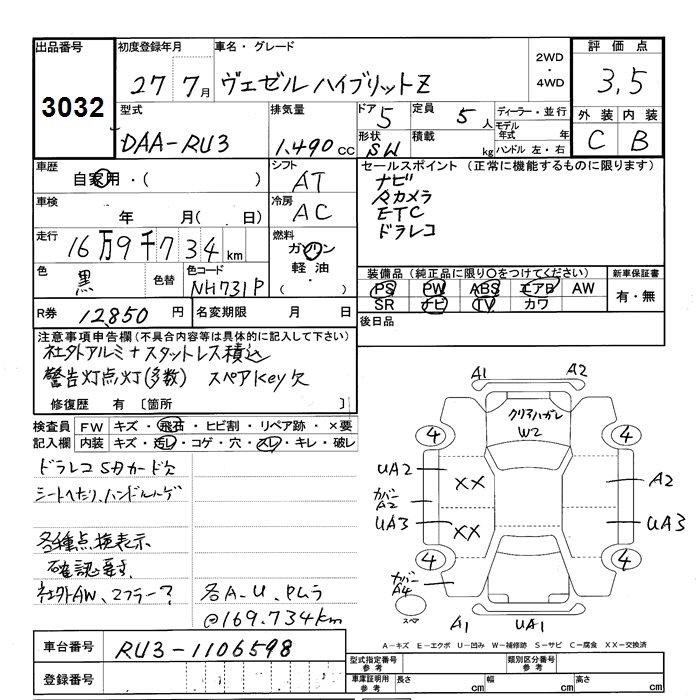 出品番号 初度登録年月 車名・グレード 2WD ・ 4WD 評価点
3032 27年 7月 ヴェゼル ハイブリットZ 3,5
型式 排気量 ドア 定員 ディーラー・並行 外装 内装
DAA-RU3 1,490 cc 5 5 人 モデル年式 年 C B
形状 積載 kg ハンドル 左・右
SW
車歴 自家用・( ) シフト AT セールスポイント (正常に機能するものに限ります)
ナビ
カメラ
ETC
ドラレコ
車検 年 月( 日) 冷房 AC
走行 16万9千734km 燃料 ガソリン 軽油・
色 黒 色替 色コード NH731P
装備品 (純正品に限り○をつけてください) 新車保証書
PS PW ABS エアB AW 有・無
SR ナビ TV カワ
R券 12,850 円 名変期限 月 日 後日品
注意事項申告欄(不具合内容等は具体的に記入して下さい)
社外アルミ+スタットレス積込
警告灯点灯(多数) スペアKey欠
修復歴 有 [箇所 ]
検査員記入欄 FW キズ・飛石・ヒビ割・リペア跡・×要
内装 キズ・汚レ・コゲ・穴・スレ・キレ・破レ
ドラレコ SDカード欠
シートへたり、ハンドルハゲ
各種点検表示
確認要す
社外AW、マフラー? 各A-U、ヤムラ
@169.734km
A1 A2
クリアハガレ
W2
4 4
UA2 XX A2
カバー A2
UA3 XX UA3
4 4
カバー A4
スペア A1 UA1
A-キズ E-エクボ U-凹み W-補修跡 S-サビ C-腐食 XX-交換済
車台番号 RU3-1106598
登録番号
型式指定番号 参考 類別区分番号 参考
車庫証明用 参考 長さ cm 幅 cm 高さ cm